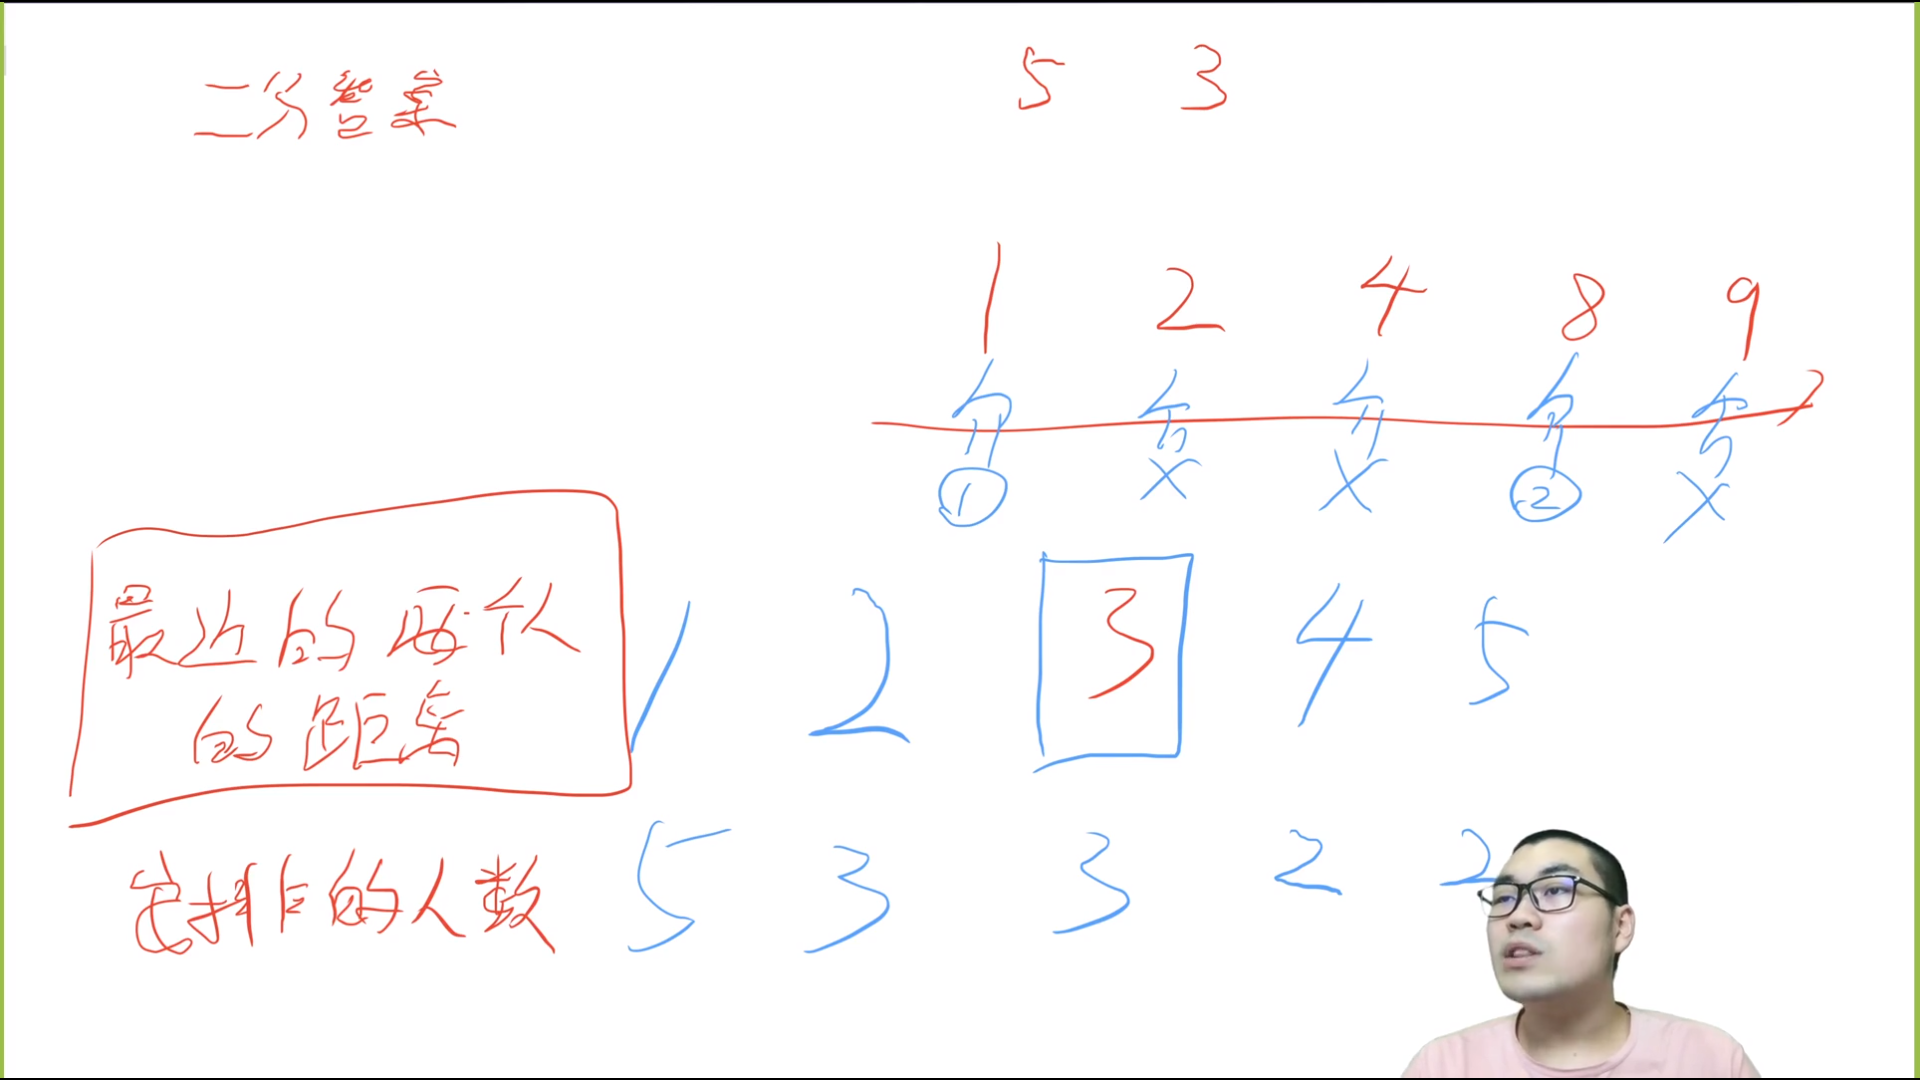 二分答案
5 3
1 2 4 8 9
① X X ② X
最近的两个人
的距离
1 2 3 4 5
安排的人数 5 3 3 2 2